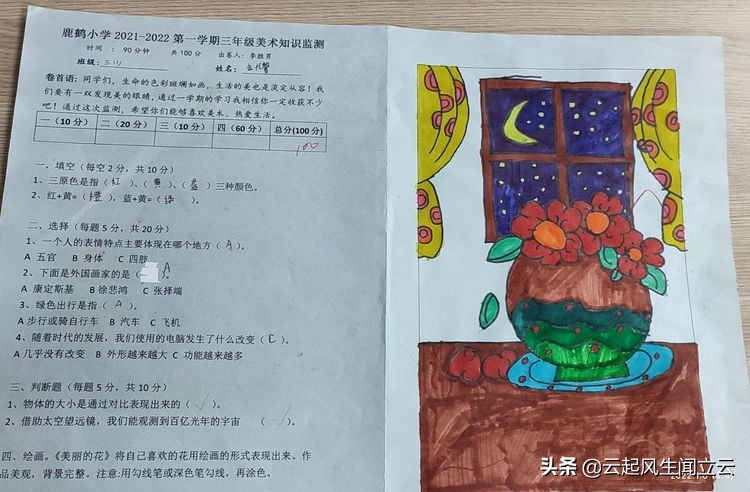 鹿鹤小学2021-2022第一学期三年级美术知识监测
时间 : 90分钟 共100分 出卷人:李胜男
班级: 姓名:
卷首语:同学们,生命的色彩斑斓如画,生活的美也是淡定从容!我
们要有一双发现美的眼睛,通过一学期的学习我相信你一定收获不少
吧!通过这次监测,希望你们能够喜欢美术、热爱生活。
一(10分) 二(20分) 三(10分) 四(60分) 总分(100分)
100
一、填空(每空2分,共10分)
1、三原色是指(红)、(黄)、(蓝)三种颜色。
2、红+黄=(橙),蓝+黄=(绿)。
二、选择(每题5分,共20分)
1、一个人的表情特点主要体现在哪个地方(A)。
A 五官 B 身体 C 四肢
2、下面是外国画家的是(A)。
A 康定斯基 B 徐悲鸿 C 张择端
3、绿色出行是指(A)。
A 步行或骑自行车 B 汽车 C 飞机
4、随着时代的发展,我们使用的电脑发生了什么改变(C)。
A 几乎没有改变 B 外形越来越大 C 功能越来越多
三、判断题(每题5分,共10分)
1、物体的大小是通过对比表现出来的(√)。
2、借助太空望远镜,我们能观测到百亿光年的宇宙 (√)。
四、绘画。《美丽的花》将自己喜欢的花用绘画的形式表现出来。作
品美观,背景完整。注意:用勾线笔或深色笔勾线,再涂色。
头条 @云起风生闻立云